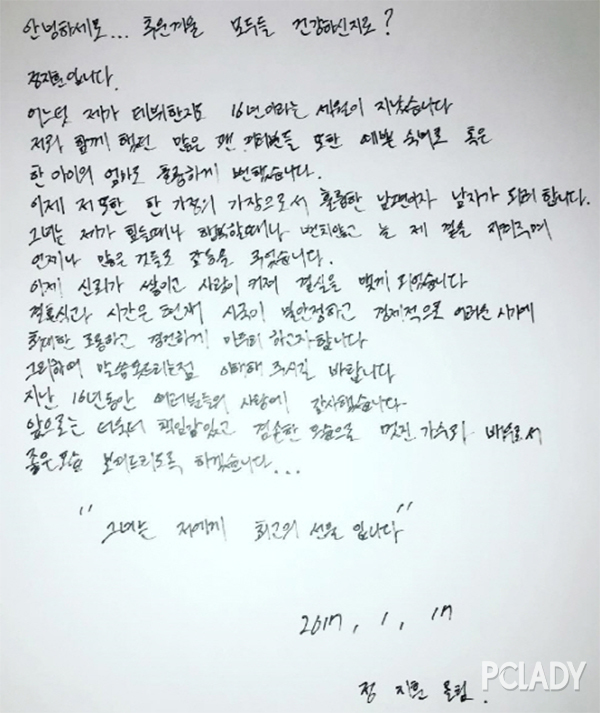 안녕하세요... 추운겨울 모두들 건강하신지요?
정지훈입니다.
어느덧 제가 데뷔한지도 16년이라는 세월이 지났습니다
저와 함께 했던 많은 팬 여러분들 또한 예쁜 숙녀로 혹은
한 아이의 엄마로 훌륭하게 변했습니다.
이제 저 또한 한 가정의 가장으로서 훌륭한 남편이자 남자가 되려 합니다.
그녀는 제가 힘들때나 행복할때나 변치않고 늘 제 곁을 지켜주며
언제나 많은것들로 감동을 주었습니다.
이제 신뢰가 쌓이고 사랑이 커져 결실을 맺게 되었습니다
결혼식과 시간은 현재 시국이 불안정하고 경제적으로 어려운 시기에
최대한 조용하고 경건하게 마무리 하고자 합니다
그리하여 말씀못드리는점 이해해 주시길 바랍니다
지난 16년동안 여러분들의 사랑에 감사했습니다
앞으로는 더욱더 책임감있고 겸손한 모습으로 멋진 가수와 배우로서
좋은모습 보여드리도록 하겠습니다...
"그녀는 저에게 최고의 선물 입니다"
2017. 1. 17
정 지훈 올림.
PCLADY